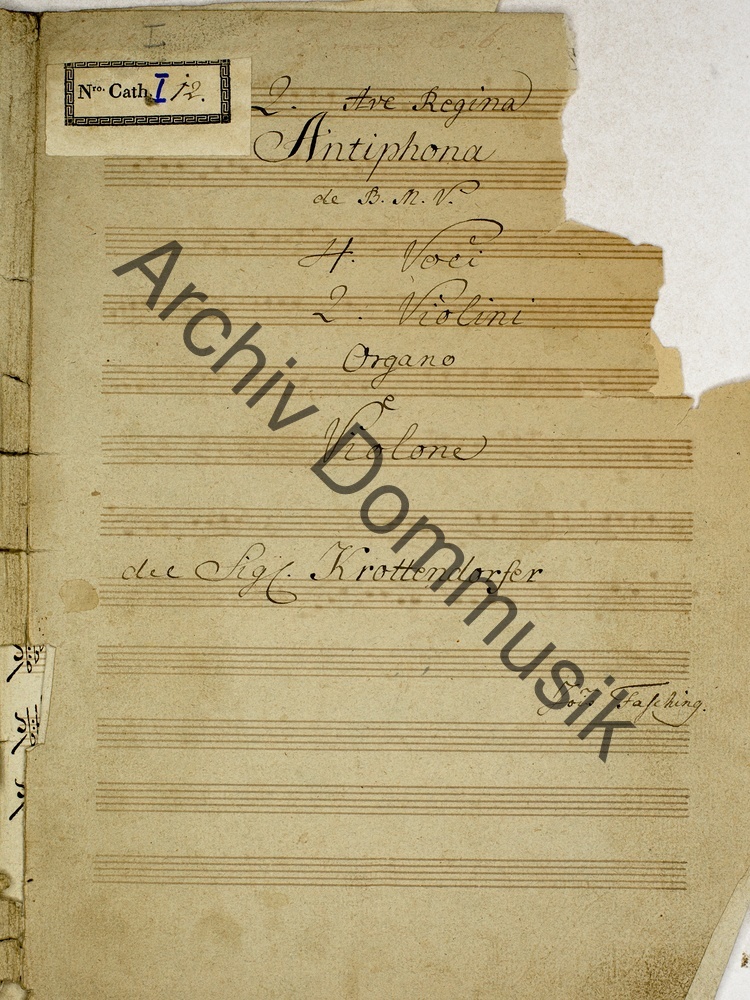 I
Nro. Cath. I 12.
2. Ave Regina
Antiphona
de B. M. V.
4. Voci
2. Violini
Organo
e
Violone
del Sigl. Krottendorfer
Fasching.
Archiv Dommusik